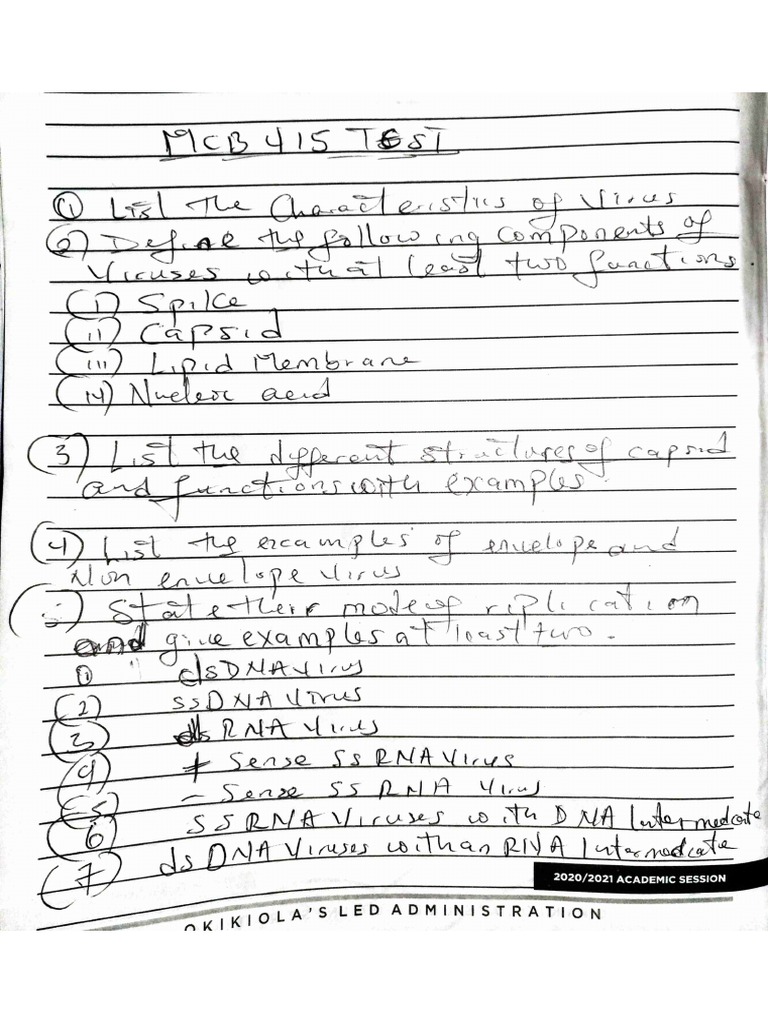 MCB 415 TEST
① List the Characteristics of Virus
② Define the following components of
Viruses with at least two functions
(i) Spike
(ii) Capsid
(iii) Lipid Membrane
(iv) Nucleic acid
3) List the different structures of capsid
and functions with examples.
(4) List the examples of envelope and
Non envelope virus
State their mode of replication
and give examples at least two.
① dsDNA Virus
(2) ssDNA Virus
(3) ds RNA Virus
(4) + Sense SS RNA Virus
(5) - Sense SS RNA Virus
(6) SS RNA Viruses with DNA Intermediate
(7) ds DNA Viruses with an RNA Intermediate
2020/2021 ACADEMIC SESSION
OKIKIOLA'S LED ADMINISTRATION